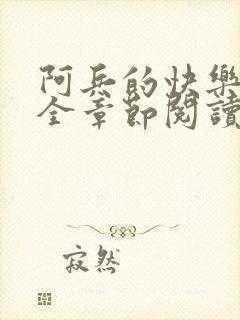 阿兵的快樂
全章節閱讀
寂然